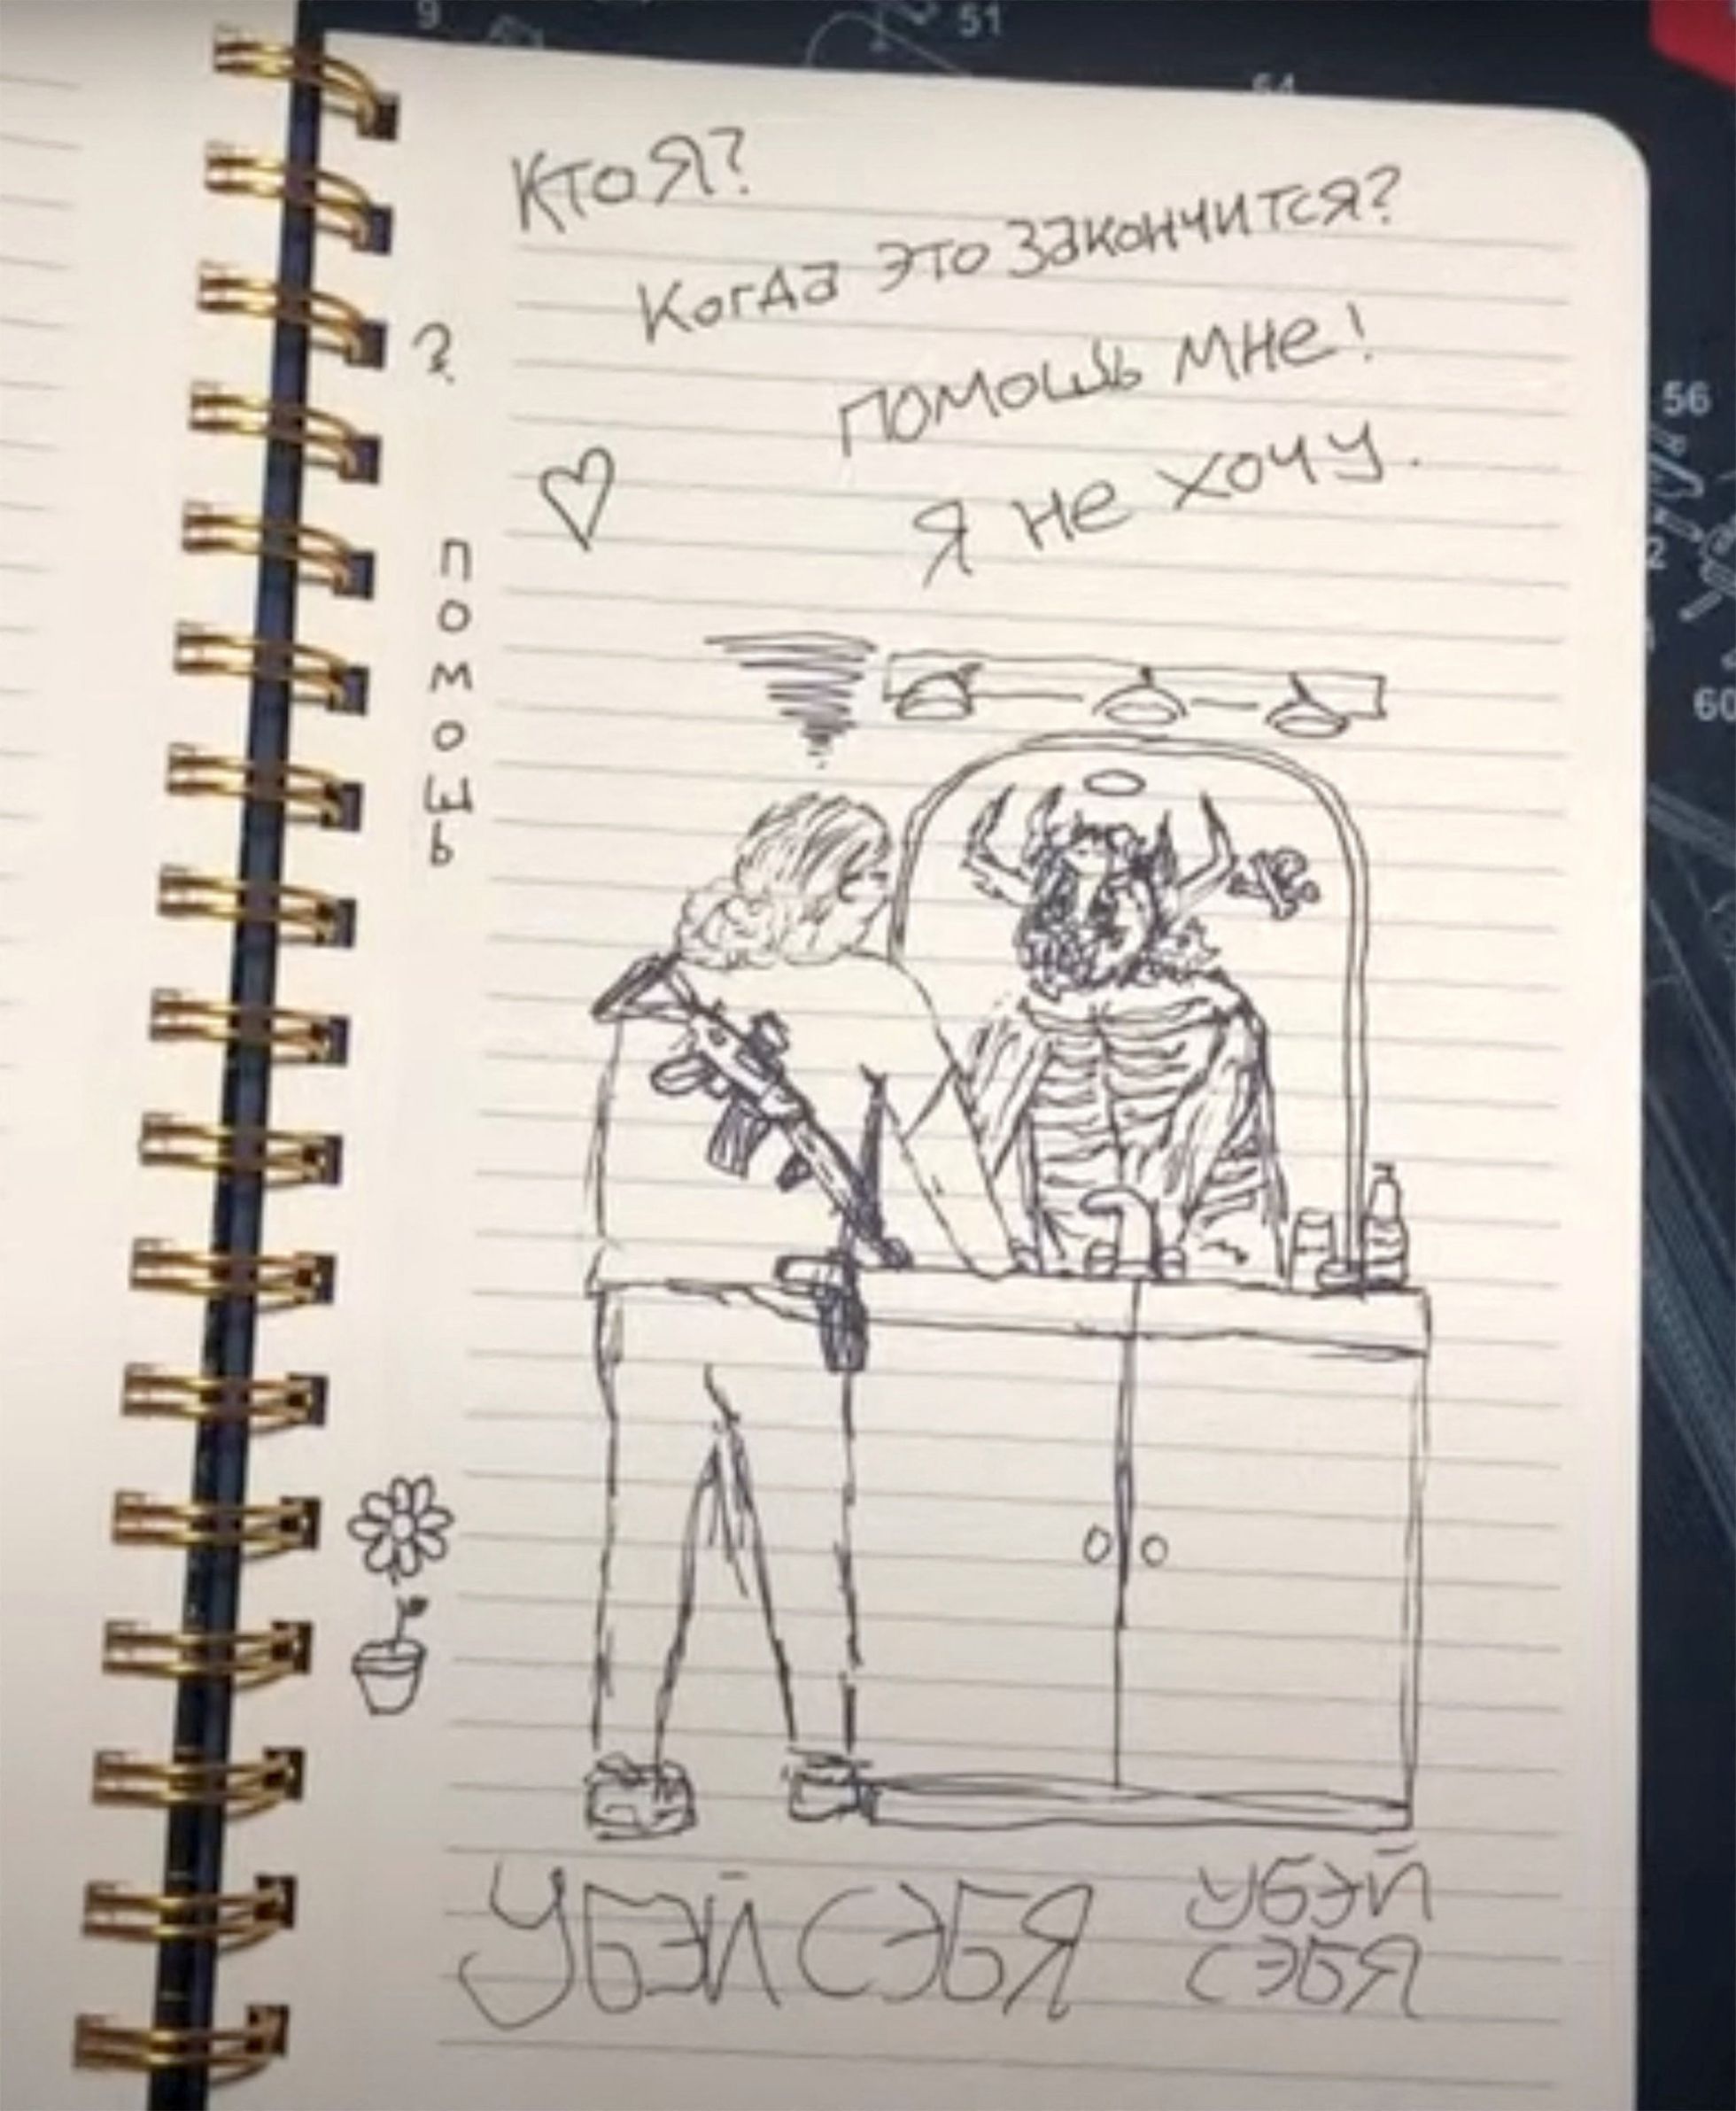 9
51
54
Кто Я?
Когда это закончится?
?
помошь мне!
56
я не хочу.
помошь
2
60
УБЭЙ СЭБЯ
УБЭЙ
СЭБЯ